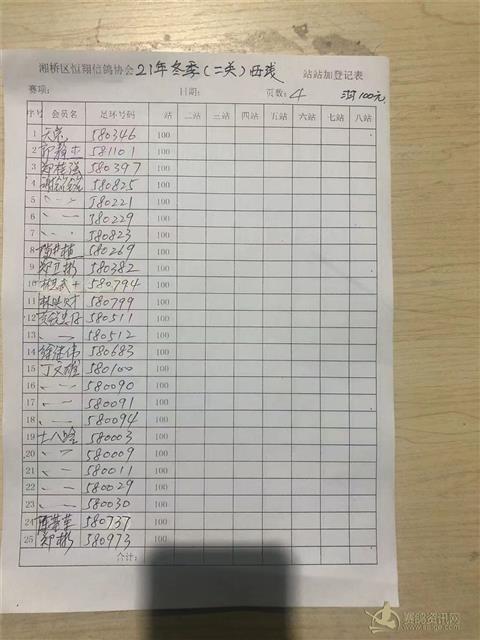 湘桥区恒翔信鸽协会 21年冬季(二关)西线 站站加登记表
赛项: 日期: 页数: 4 100元
序号 会员名 足环号码 一站 二站 三站 四站 五站 六站 七站 八站
1 580346 100
2 581101 100
3 郑桂强 580397 100
4 580825 100
5 〃 一 580221 100
6 〃 一 580229 100
7 〃 一 580823 100
8 580269 100
9 郑卫彬 580382 100
10 580794 100
11 580799 100
12 580511 100
13 〃 一 580512 100
14 徐继伟 580683 100
15 丁文雄 580100 100
16 〃 一 580090 100
17 〃 一 580091 100
18 〃 一 580094 100
19 580003 100
20 〃 一 580009 100
21 〃 一 580011 100
22 〃 一 580029 100
23 〃 一 580030 100
24 580737 100
25 郑彬 580973 100
合计:
赛鸽资讯网